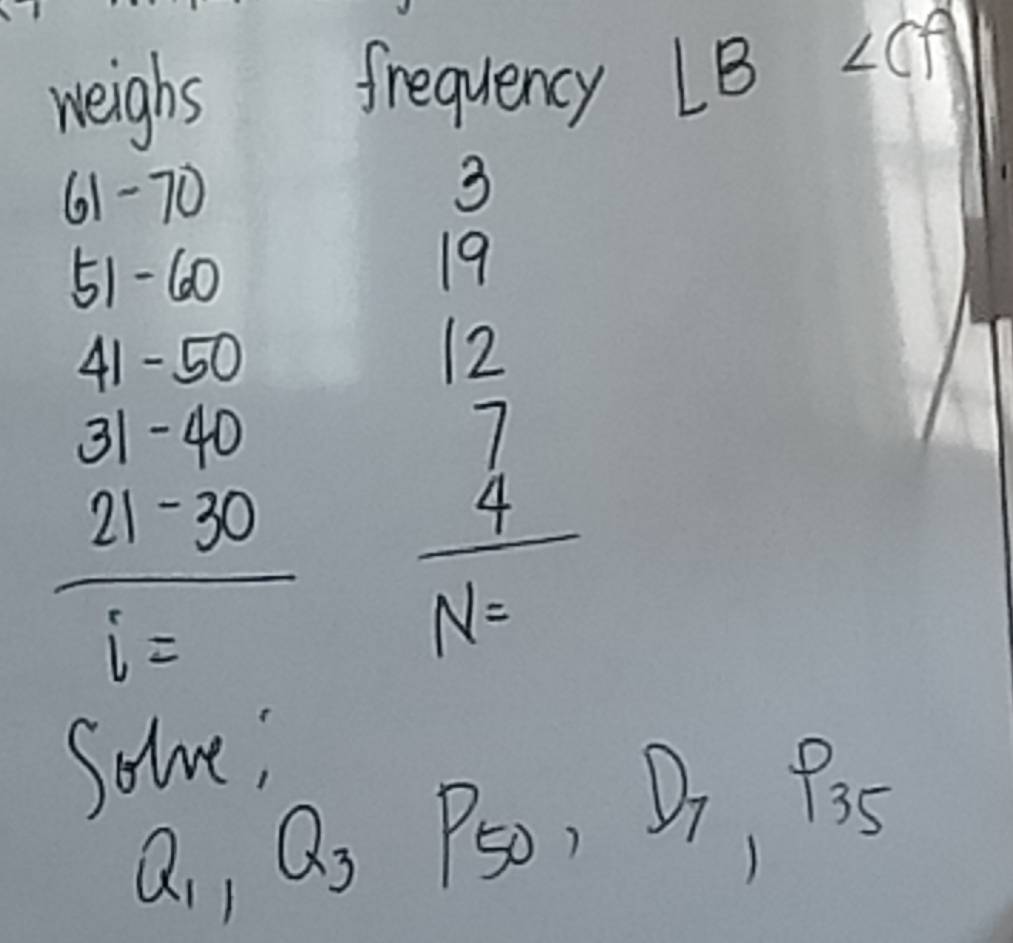 weighs frequency LB <Cf
61-70 3
51-60 19
41-50 12
31-40 7
21-30 4
i= N=
Solve:
Q1, Q3 P50, D7, P35